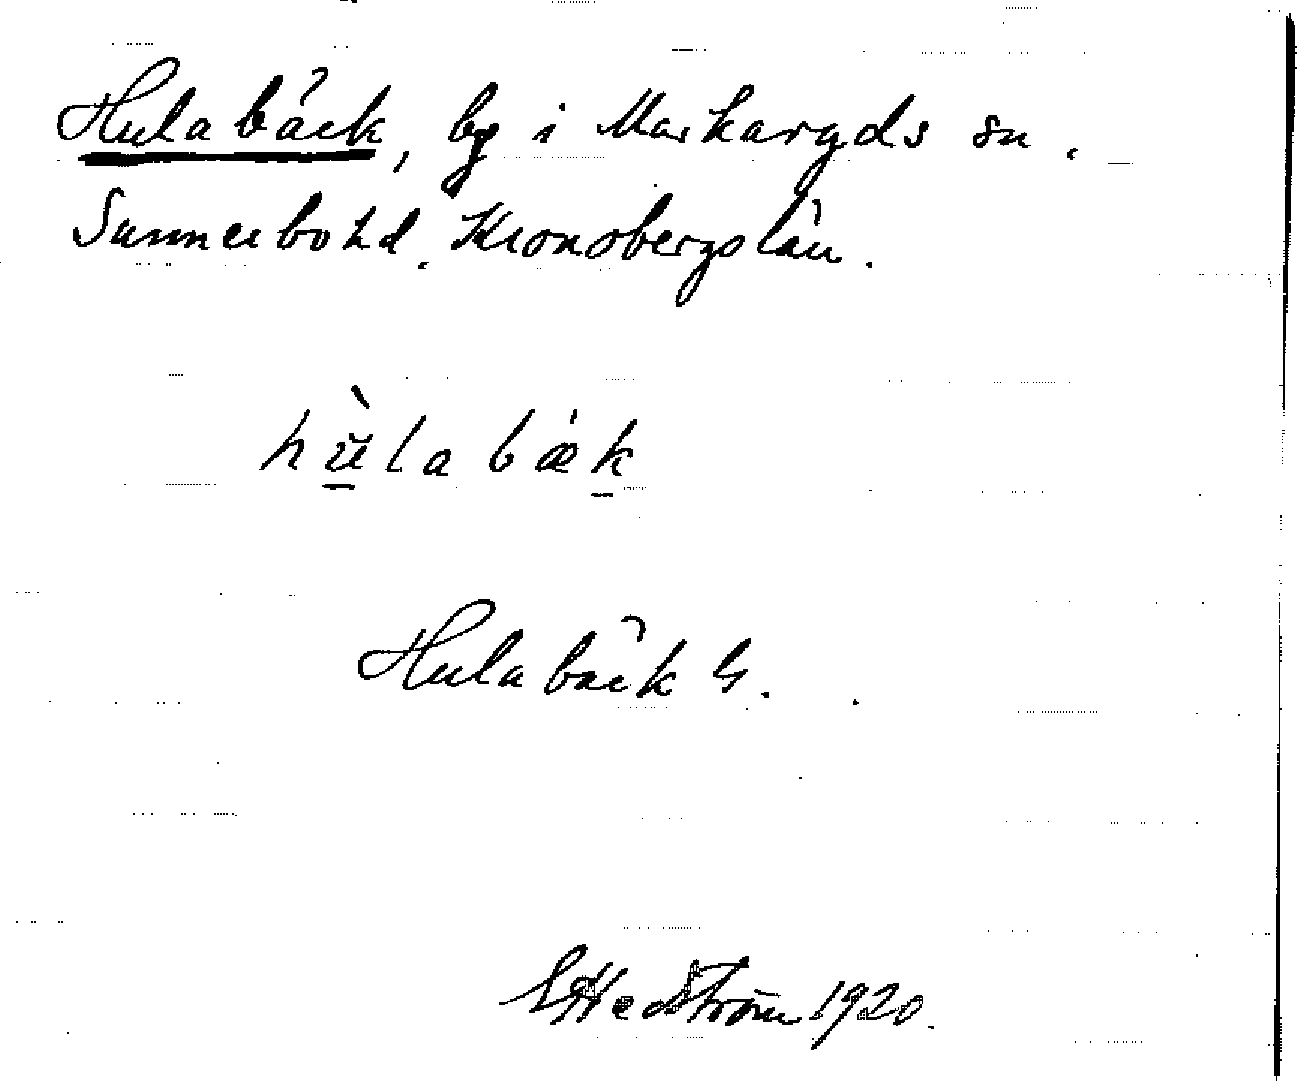 Hulabäck, by i Markaryds sn.
Sunnerbo hd. Kronobergs län.
hùlabæk
Hulabäck G.
G Hedström 1920.